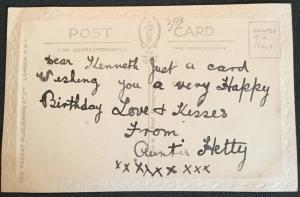 POST CARD
FOR CORRESPONDENCE
PRINTED
IN
ITALY
Dear Kenneth Just a card
Wishing you a very Happy
Birthday Love & Kisses
From
Auntie Hetty
xxxxxxxx
THE REGENT PUBLISHING Co LTD LONDON N.W.1